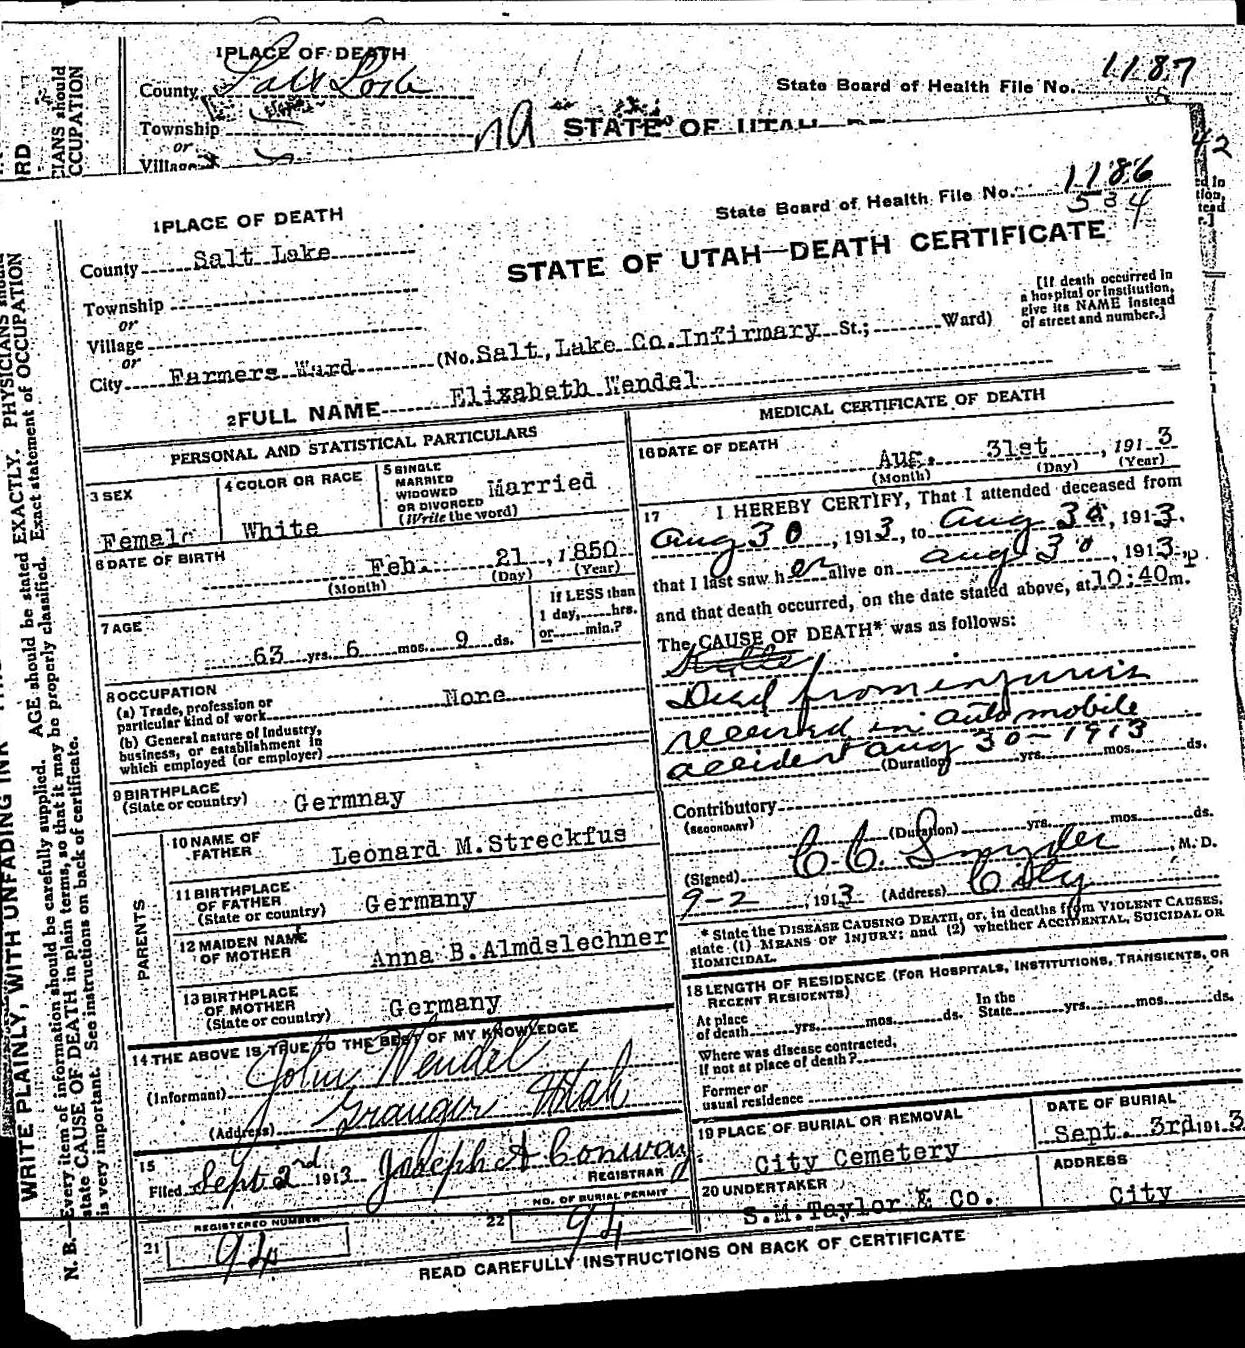 1 PLACE OF DEATH
County Salt Lake
Township
or
Village
State Board of Health File No. 1187
STATE OF UTAH—DE
42
1 PLACE OF DEATH
State Board of Health File No. 1186
534
County Salt Lake
STATE OF UTAH—DEATH CERTIFICATE
Township
or
Village
or
City Farmers Ward (No. Salt, Lake Co. Infirmary St.; Ward)
[If death occurred in
a hospital or institution,
give its NAME instead
of street and number.]
2 FULL NAME Elizabeth Wendel
PERSONAL AND STATISTICAL PARTICULARS
3 SEX
Female
4 COLOR OR RACE
White
5 SINGLE
MARRIED
WIDOWED
OR DIVORCED
(Write the word)
Married
6 DATE OF BIRTH
Feb. 21, 1850
(Month) (Day) (Year)
7 AGE
63 yrs. 6 mos. 9 ds.
If LESS than
1 day, hrs.
or min.?
8 OCCUPATION
(a) Trade, profession or
particular kind of work None
(b) General nature of industry,
business, or establishment in
which employed (or employer)
9 BIRTHPLACE
(State or country) Germnay
PARENTS
10 NAME OF
FATHER Leonard M. Streckfus
11 BIRTHPLACE
OF FATHER
(State or country) Germany
12 MAIDEN NAME
OF MOTHER Anna B. Almdslechner
13 BIRTHPLACE
OF MOTHER
(State or country) Germany
14 THE ABOVE IS TRUE TO THE BEST OF MY KNOWLEDGE
(Informant) John Wendel
(Address) Granger Utah
15
Filed Sept 2nd 1913 Joseph A Conway
REGISTRAR
21 REGISTERED NUMBER
94
22 NO. OF BURIAL PERMIT
94
MEDICAL CERTIFICATE OF DEATH
16 DATE OF DEATH
Aug. 31st, 1913
(Month) (Day) (Year)
17 I HEREBY CERTIFY, That I attended deceased from
Aug 30, 1913, to Aug 30, 1913.
that I last saw her alive on Aug 30, 1913,
and that death occurred, on the date stated above, at 10:40 P m.
The CAUSE OF DEATH* was as follows:
Dead from injuries
received in automobile
accident Aug 30-1913
(Duration) yrs. mos. ds.
Contributory
(SECONDARY)
(Duration) yrs. mos. ds.
(Signed) C. C. Snyder, M. D.
9-2, 1913 (Address) City
* State the DISEASE CAUSING DEATH, or, in deaths from VIOLENT CAUSES,
state (1) MEANS OF INJURY; and (2) whether ACCIDENTAL, SUICIDAL OR
HOMICIDAL.
18 LENGTH OF RESIDENCE (FOR HOSPITALS, INSTITUTIONS, TRANSIENTS, OR
RECENT RESIDENTS)
At place
of death yrs. mos. ds.
In the
State yrs. mos. ds.
Where was disease contracted,
if not at place of death?
Former or
usual residence
19 PLACE OF BURIAL OR REMOVAL
City Cemetery
DATE OF BURIAL
Sept. 3rd 1913
20 UNDERTAKER
S.M. Taylor & Co.
ADDRESS
City
READ CAREFULLY INSTRUCTIONS ON BACK OF CERTIFICATE
WRITE PLAINLY, WITH UNFADING INK
N. B.—Every item of information should be carefully supplied. AGE should be stated EXACTLY. PHYSICIANS should
state CAUSE OF DEATH in plain terms, so that it may be properly classified. Exact statement of OCCUPATION
is very important. See instructions on back of certificate.